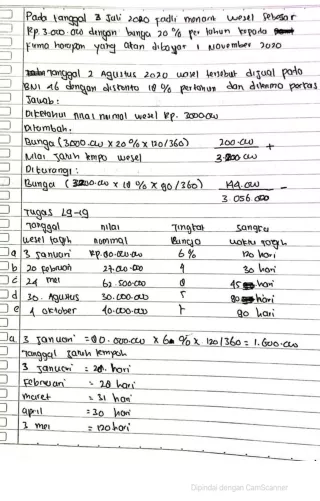 Pada tanggal 3 Juli 2020 fadli menarik wesel sebesar
Rp. 3.000.000 dengan bunga 20 % per tahun kepada
Firma harapan yang akan dibayar 1 November 2020
Tanggal 2 Agustus 2020 wesel tersebut dijual pada
BNI 46 dengan diskonto 18 % per tahun dan diterima
Jawab :
Diketahui nilai nominal wesel Rp. 3000.000
Ditambah.
Bunga (3000.000 x 20 % x 120/360) 200.000 +
Nilai jatuh tempo wesel 3.200.000
Dikurangi :
Bunga (3200.000 x 18 % x 90/360) 144.000 -
3 056 000
Tugas L9-19
Tanggal nilai Tingkat Jangka
wesel tagih nominal Bunga waktu tagih
a 3 Januari Rp. 80.000.000 6 % 120 hari
b 20 Februari 27.000.000 9 30 hari
c 24 mei 62.500.000 8 45 hari
d 30. Agustus 30.000.000 5 hari
e 4 oktober 40.000.000 90 hari
a 3 Januari = 80.000.000 x 6 % x 120/360 = 1.600.000
Tanggal jatuh tempoh
3 januari = 28. hari
Februari = 28 hari
maret = 31 hari
april = 30 hari
3 mei = 120 hari
Dipindai dengan CamScanner